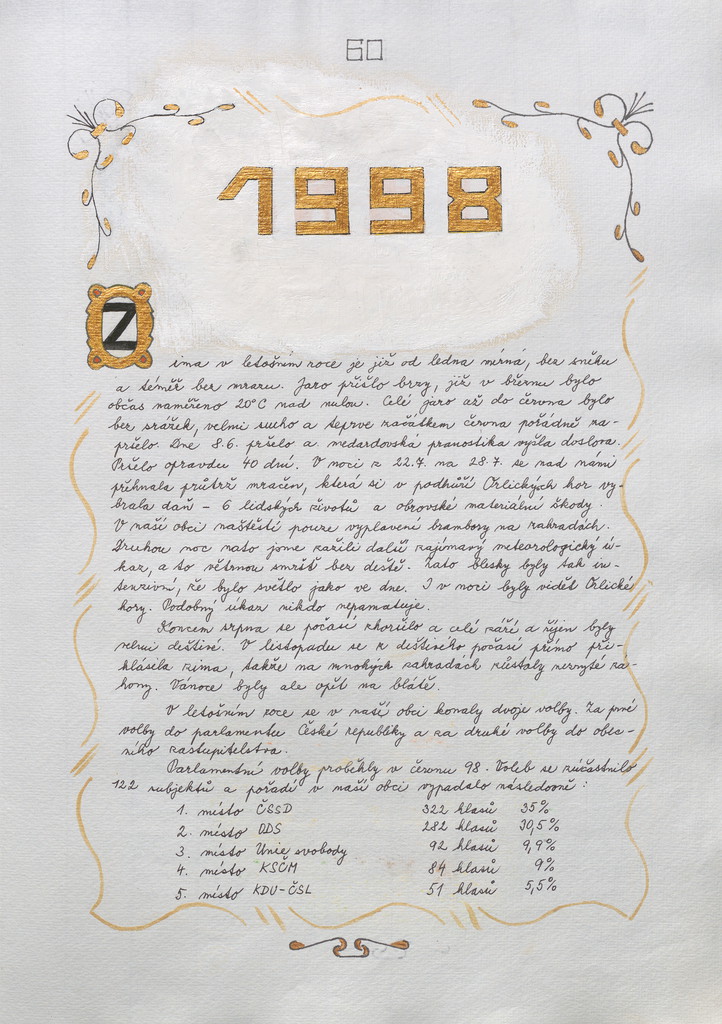 60
1998
Zima v letošním roce je již od ledna mírná, bez sněhu
a téměř bez mrazu. Jaro přišlo brzy, již v březnu bylo
občas naměřeno 20°C nad nulou. Celé jaro až do června bylo
bez srážek, velmi sucho a teprve začátkem června pořádně za-
pršelo. Dne 8.6. pršelo a medardovská pranostika vyšla doslova.
Pršelo opravdu 40 dní. V noci z 22.7. na 23.7. se nad námi
přehnala průtrž mračen, která si v podhůří Orlických hor vy-
brala daň - 6 lidských životů a obrovské materiální škody.
V naší obci naštěstí pouze vyplavení brambory na zahradách.
Druhou noc nato jsme zažili další zajímavý meteorologický ú-
kaz, a to větrnou smršť bez deště. Zato blesky byly tak in-
tenzivní, že bylo světlo jako ve dne. I v noci byly vidět Orlické
hory. Podobný úkaz nikdo nepamatuje.
Koncem srpna se počasí zhoršilo a celé září a říjen byly
velmi deštivé. V listopadu se z deštivého počasí přímo při-
hlásila zima, takže na mnohých zahradách zůstaly nezryté zá-
hony. Vánoce byly ale opět na blátě.
V letošním roce se v naší obci konaly dvoje volby. Za prvé
volby do parlamentu České republiky a za druhé volby do obec-
ního zastupitelstva.
Parlamentní volby proběhly v červnu 98. Voleb se zúčastnilo
122 subjektů a pořadí v naší obci vypadalo následovně:
1. místo ČSSD 322 hlasů 35%
2. místo ODS 282 hlasů 30,5%
3. místo Unie svobody 92 hlasů 9,9%
4. místo KSČM 84 hlasů 9%
5. místo KDU-ČSL 51 hlasů 5,5%